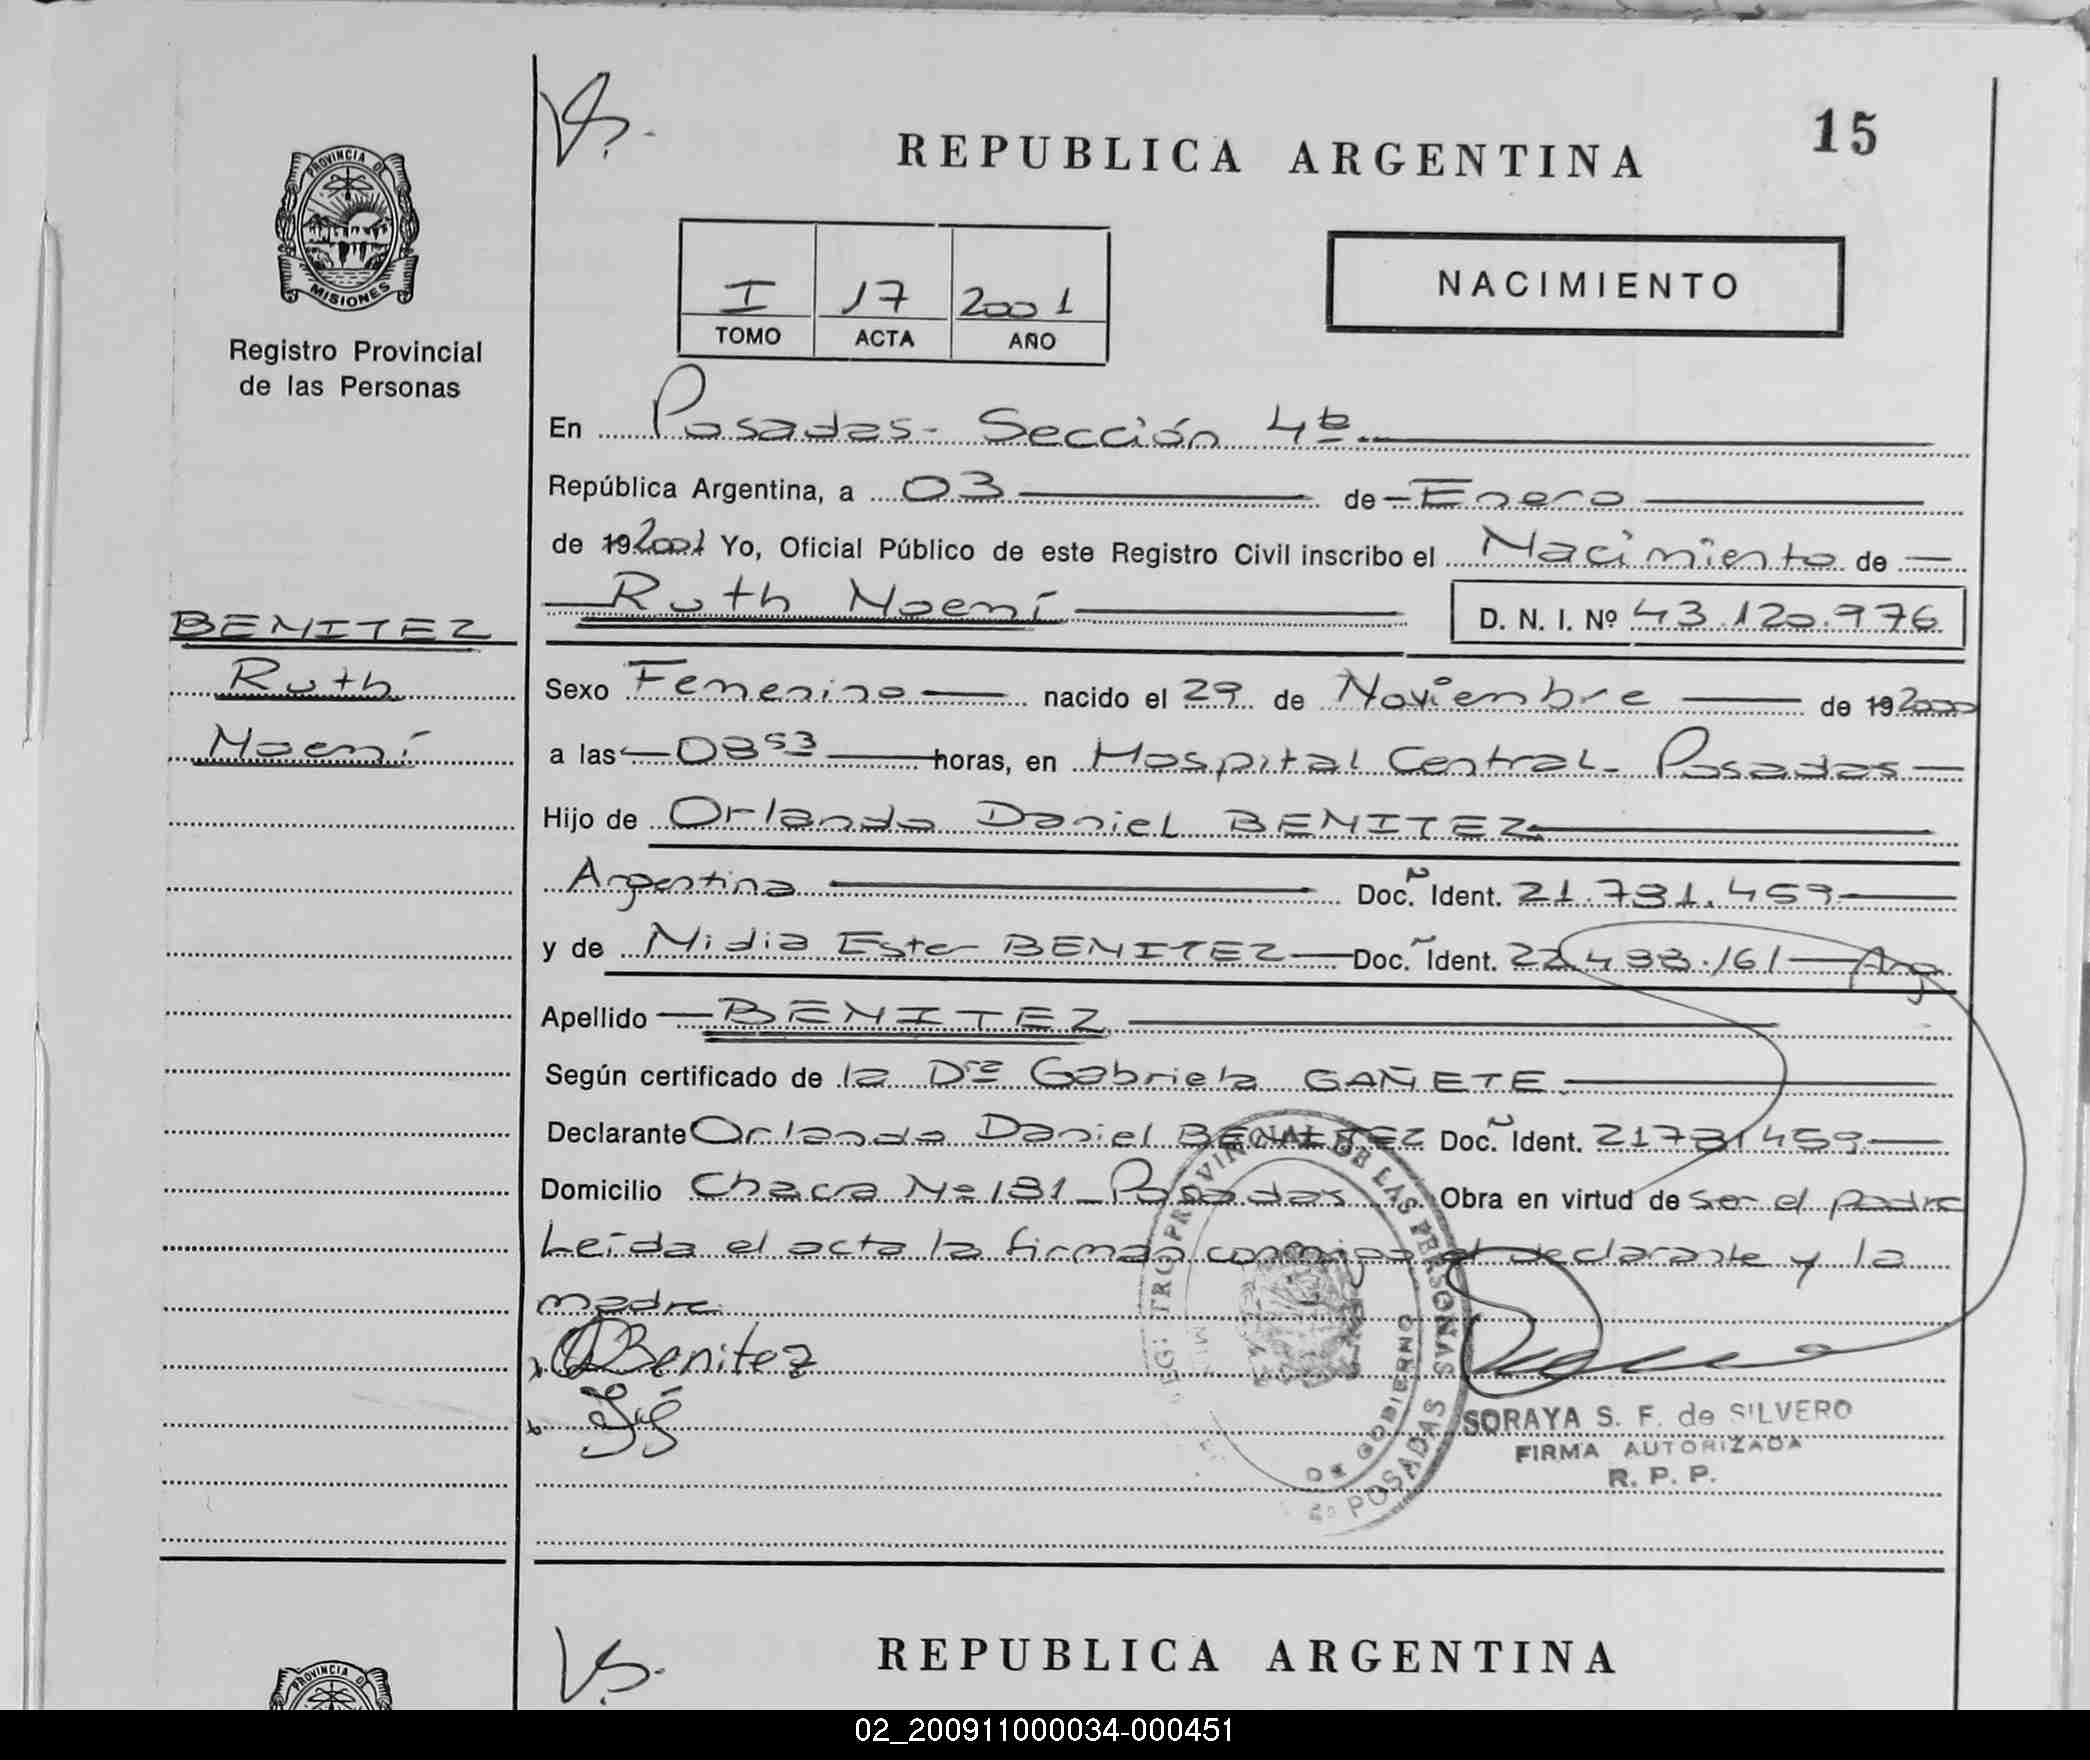 REPUBLICA ARGENTINA
15
PROVINCIA DE
MISIONES
Registro Provincial
de las Personas
I 17 2001
TOMO ACTA AÑO
NACIMIENTO
En Posadas - Sección 4ta
República Argentina, a 03 de Enero
de 19 2001 Yo, Oficial Público de este Registro Civil inscribo el Nacimiento de
Ruth Noemí D. N. I. Nº 43.120.976
BENITEZ
Ruth
Noemí
Sexo Femenino nacido el 29 de Noviembre de 19 2000
a las 08 53 horas, en Hospital Central - Posadas
Hijo de Orlando Daniel BENITEZ
Argentina Doc. Ident. 21.731.459
y de Nidia Ester BENITEZ Doc. Ident. 22.433.161 Arg
Apellido BENITEZ
Según certificado de la Dra Gabriela GAÑETE
Declarante Orlando Daniel BENITEZ Doc. Ident. 21731459
Domicilio Chacra Nº 181 - Posadas Obra en virtud de ser el padre
Leída el acta la firman conmigo el declarante y la
madre
Benitez
PROVINCIAL DE LAS PERSONAS
POSADAS
SORAYA S. F. de SILVERO
FIRMA AUTORIZADA
R. P. P.
REPUBLICA ARGENTINA
PROVINCIA DE
02_200911000034-000451